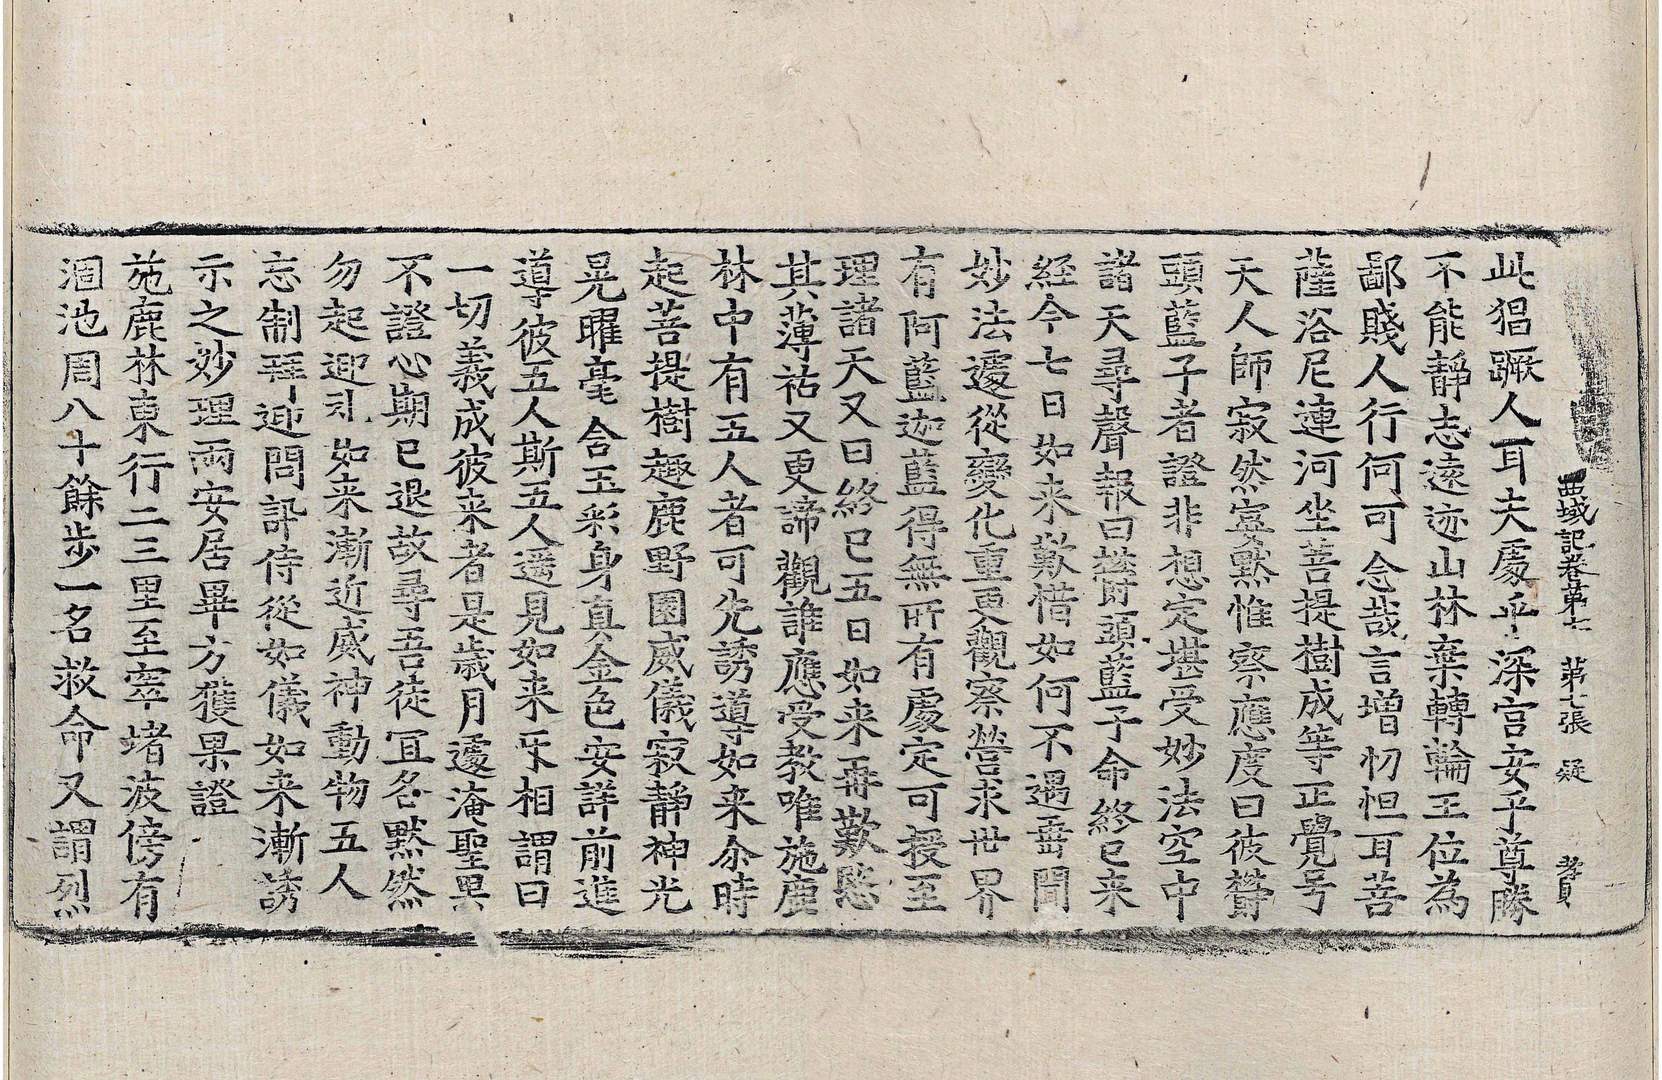 西域記卷第七 第七張 疑 孝貞
此猖蹶人耳夫處乎深宮安乎尊勝
不能靜志遠迹山林棄轉輪王位為
鄙賤人行何可念哉言增忉怛耳菩
薩浴尼連河坐菩提樹成等正覺号
天人師寂然宴默惟察應度曰彼欝
頭藍子者證非想定堪受妙法空中
諸天尋聲報曰欝頭藍子命終已来
經今七日如来歎惜如何不遇垂聞
妙法遽從變化重更觀察營求世界
有阿藍迦藍得無所有處定可授至
理諸天又曰終已五日如来再歎愍
其薄祐又更諦觀誰應受教唯施鹿
林中有五人者可先誘導如来尒時
起菩提樹趣鹿野園威儀寂靜神光
晃曜毫含玉彩身真金色安詳前進
導彼五人斯五人遥見如来互相謂曰
一切義成彼来者是歳月遽淹聖果
不證心期已退故尋吾徒宜各默然
勿起迎礼如来漸近威神動物五人
忘制拜迎問訊侍從如儀如来漸誘
示之妙理兩安居畢方獲果證
施鹿林東行二三里至窣堵波傍有
涸池周八十餘步一名救命又謂烈